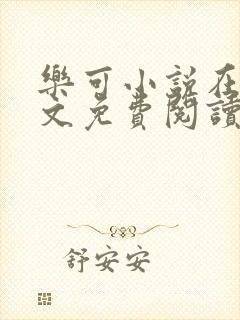 樂可小說在
文免費閱讀
舒安安